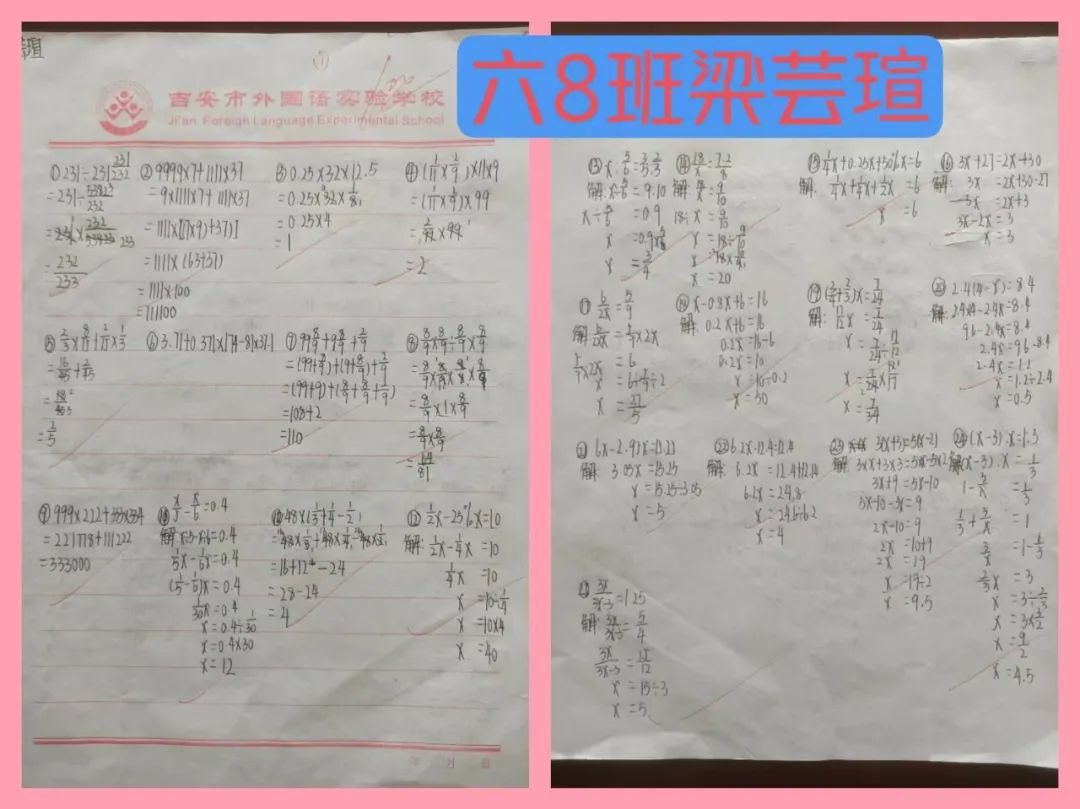 六8班梁芸瑄
瑄
①
100
吉安市外国语实验学校
Ji'an Foreign Language Experimental School
①231÷231 231/232
=231÷ 53823/232
=232/233
②9999×7+1111×37
=9×1111×7+1111×37
=1111×[(7×9)+37)]
=1111×(63+37)
=1111×100
=111100
③0.25×32×12.5
=0.25×4
=1
④(1/11×2/9)×11×9
=(1/11×2/9)×99
=2/99×99
=2
⑤2/3×8/15+2/15×1/3
=16/45+2/45
=2/5
⑥3.71+0.371×174-81×37.1
⑦99 8/9+9 8/9+2/9
=(99+9)+(8/9+8/9+2/9)
=108+2
=110
⑧8/9×8/9÷8/9×8/9
=8/9×1×8/9
=8/9×8/9
=64/81
⑨999×222+333×334
=221778+111222
=333000
⑩x/5-x/6=0.4
解:x÷5-x÷6=0.4
1/5x-1/6x=0.4
(1/5-1/6)x=0.4
1/30x=0.4
x=0.4÷1/30
x=0.4×30
x=12
48×(1/3+1/4-1/2)
=48×1/3+48×1/4-48×1/2
=16+12-24
=28-24
=4
⑫1/2x-25%x=10
解:1/2x-1/4x=10
1/4x=10
x=10÷1/4
x=10×4
x=40
年 月 日
x=0.9×5/6
x=3/4
x=18÷9/10
x=20
⑮1/4x+0.25x+50%x=6
解:1/4x+1/4x+1/2x=6
x=6
⑯3x+27=2x+30
解:3x=2x+30-27
3x=2x+3
3x-2x=3
x=3
⑰6/2x=5/9
x=27/5
⑱x-0.8x+6=16
0.2x+6=16
0.2x=16-6
0.2x=10
x=10÷0.2
x=50
⑲(3/4+2/3)x=7/24
17/12x=7/24
x=7/24÷17/12
x=7/24×12/17
x=7/34
⑳2.4(4-x)=8.4
2.4×4-2.4x=8.4
9.6-2.4x=8.4
2.4x=9.6-8.4
2.4x=1.2
x=1.2÷2.4
x=0.5
解:3.05x=15.25
x=15.25÷3.05
x=5
㉒6.2x-12.4=12.4
解:6.2x=12.4+12.4
6.2x=24.8
x=24.8÷6.2
x=4
㉓3(x+3)=5(x-2)
解:3×x+3×3=5×x-5×2
3x+9=5x-10
5x-10-3x=9
2x-10=9
2x=10+9
2x=19
x=19÷2
x=9.5
㉔(x-3):x=1:3
解:(x-3)÷x=1/3
1-3/x=1/3
1/3+3/x=1
3/x=1-1/3
2/3x=3
x=3÷2/3
x=3×3/2
x=9/2
x=4.5
3x/3x-3=1.25
解:3x/3x-3=5/4
3x/3x-3=15/12
x=15÷3
x=5